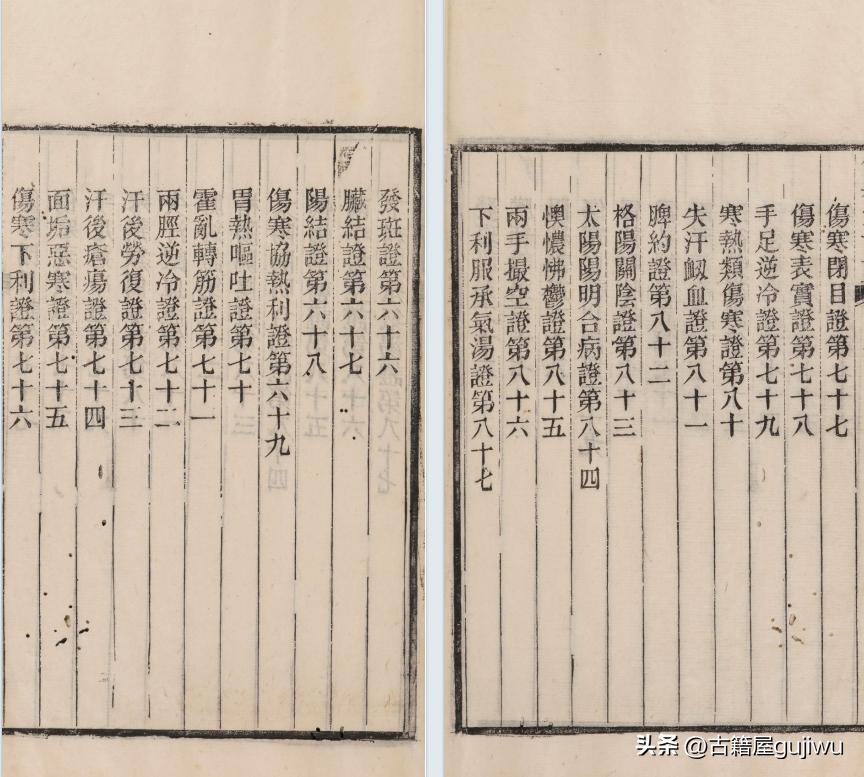 發斑證第六十六
臟結證第六十七
陽結證第六十八
傷寒協熱利證第六十九
胃熱嘔吐證第七十
霍亂轉筋證第七十一
兩脛逆冷證第七十二
汗後勞復證第七十三
汗後瘡瘍證第七十四
面垢惡寒證第七十五
傷寒下利證第七十六
傷寒閉目證第七十七
傷寒表實證第七十八
手足逆冷證第七十九
寒熱類傷寒證第八十
失汗衂血證第八十一
脾約證第八十二
格陽關陰證第八十三
太陽陽明合病證第八十四
懊憹怫鬱證第八十五
兩手撮空證第八十六
下利服承氣湯證第八十七
头条 @古籍屋gujiwu